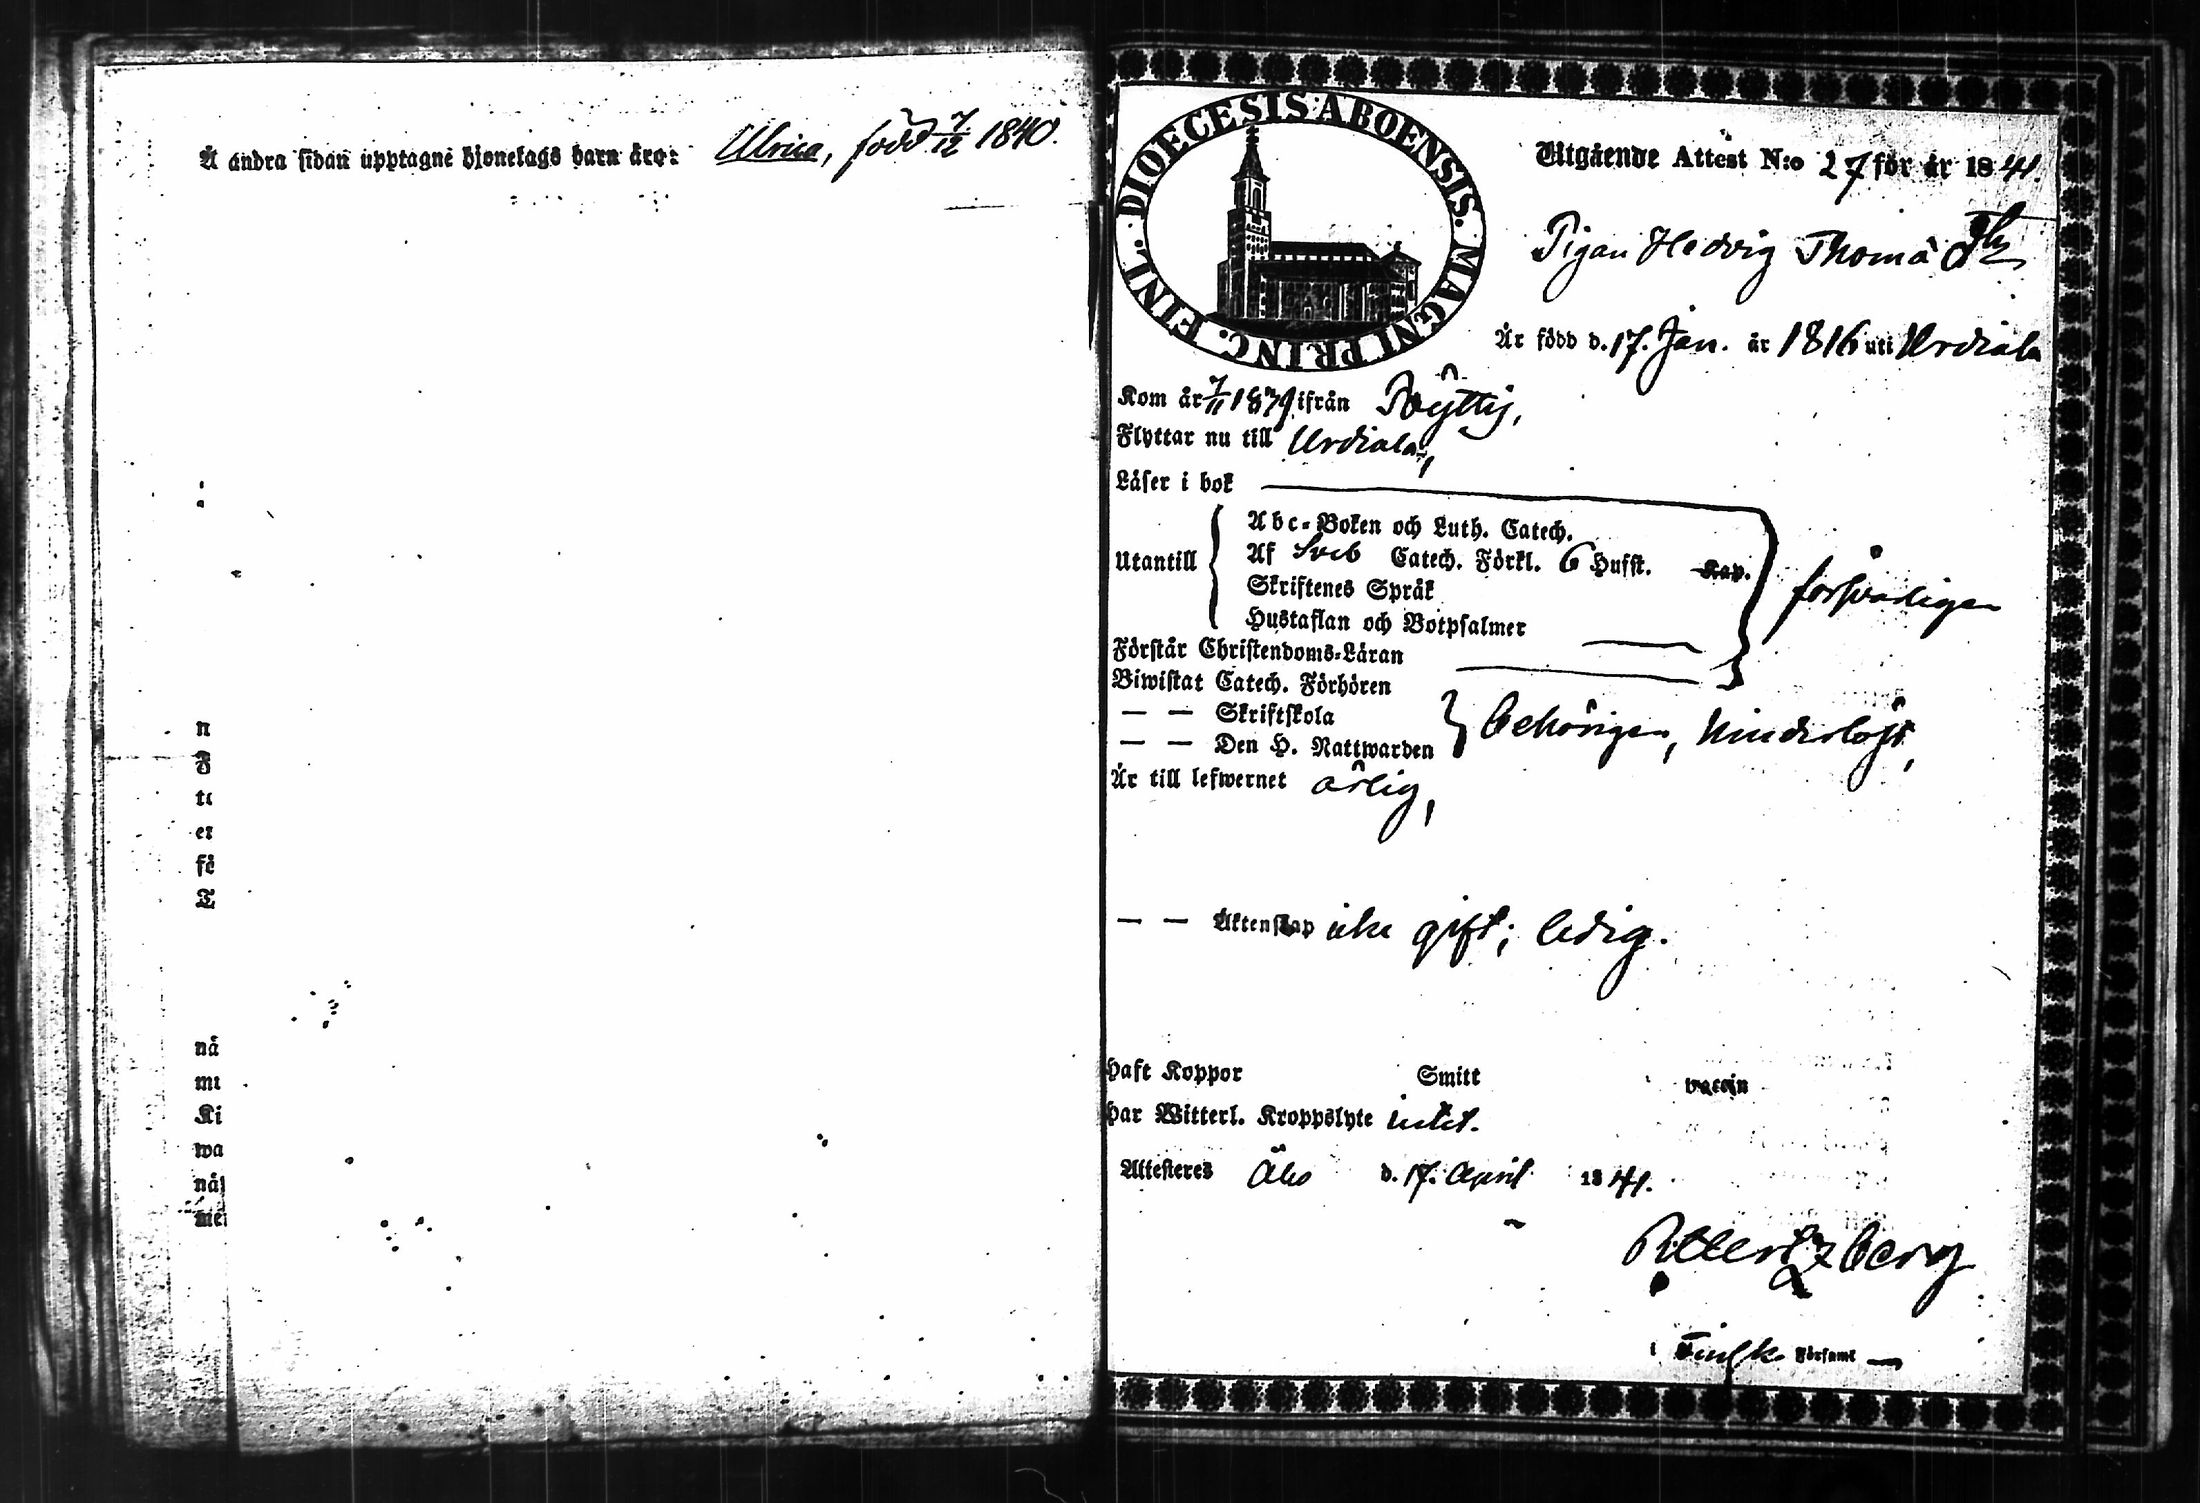 Å andra sidan upptagne hjonelags barn äro: Ulrica, född 7/12 1840.
n
F
to
er
fö
T
nå
mi
Ki
wa
näs
mei
DIOECESIS ABOENSIS. MAGNI PRINC. FINL.
Utgående Attest N:o 27 för år 1841.
Pigan Hedvig Thomä
Är född d. 17. Jan. år 1816 uti Urdiala
Kom år 7/11 1839 ifrån Pöyttis,
Flyttar nu till Urdiala,
Läser i bok
Utantill
Abc-Boken och Luth. Catech.
Af Sveb Catech. Förkl. 6 Hufst. Kap.
Skriftenes Språk
Hustaflan och Botpsalmer
försvarligen
Förstår Christendoms-Läran
Biwistat Catech. Förhören
— — Skriftskola
— — Den H. Nattwarden
behörigen, hinderlöst,
Är till lefwernet ärlig,
— — Äktenskap icke gift; ledig.
haft Koppor Smitt vaccin
har Witterl. Kroppslyte intet.
Attesteres Åbo d. 17. April 1841.
i Finska Församl